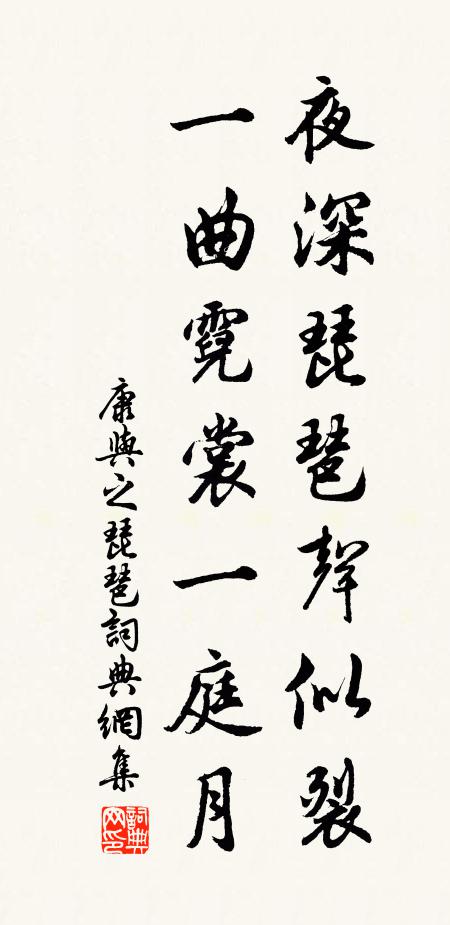 夜深琵琶聲似裂
一曲霓裳一庭月
康與之琵琶詞典網集
詞典网印